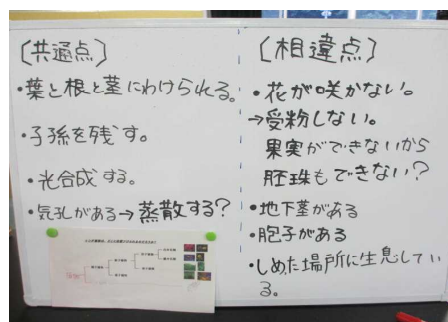 〔共通点〕
・葉と根と茎にわけられる。
・子孫を残す。
・光合成する。
・気孔がある→蒸散する?
〔相違点〕
・花が咲かない。
→受粉しない。
果実ができないから
胚珠もできない?
・地下茎がある
・胞子がある
・しめた場所に生息してい
る。